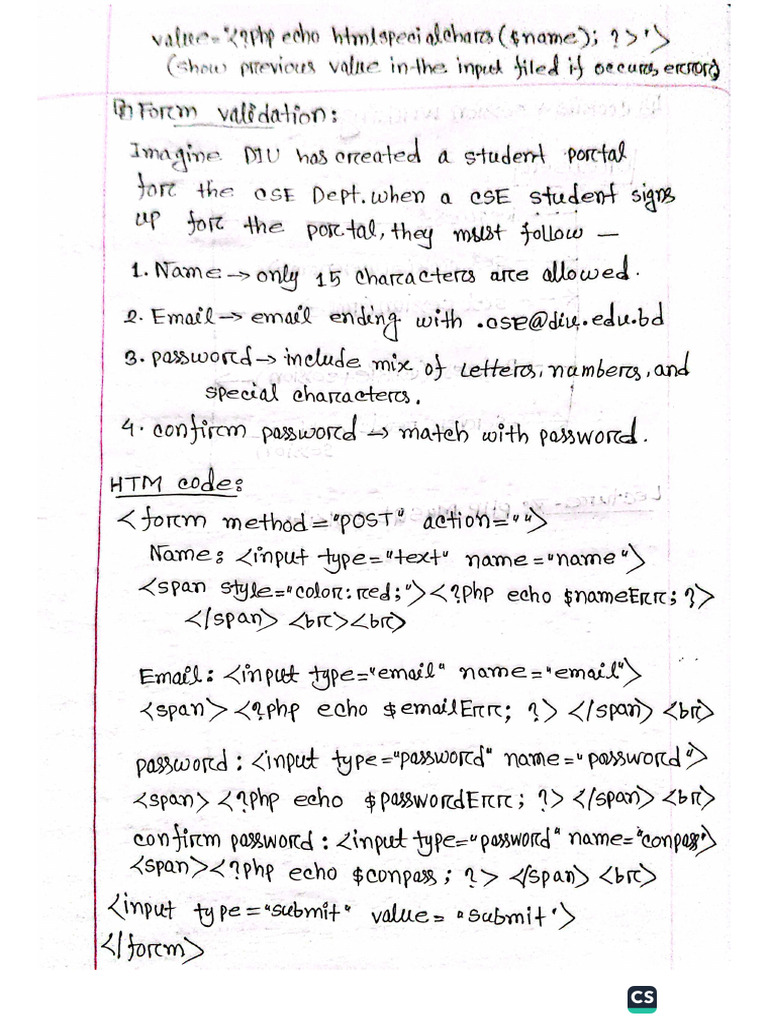 value='<?php echo htmlspecialchars($name); ?>'>
(show previous value in the input filed if occurs, error)
Form validation:
Imagine DIU has created a student portal
for the CSE Dept. when a CSE student signs
up for the portal, they must follow —
1. Name → only 15 characters are allowed.
2. Email → email ending with .cse@diu.edu.bd
3. password → include mix of Letters, numbers, and
special characters.
4. confirm password → match with password.
HTM code:
<form method="POST" action="">
Name: <input type="text" name="name">
<span style="color:red;"><?php echo $nameErr; ?>
</span> <br><br>
Email: <input type="email" name="email">
<span> <?php echo $emailErr; ?> </span> <br>
password: <input type="password" name="password">
<span> <?php echo $passwordErr; ?> </span> <br>
confirm password: <input type="password" name="conpass">
<span><?php echo $conpass; ?> </span> <br>
<input type="submit" value="submit">
</form>
CS